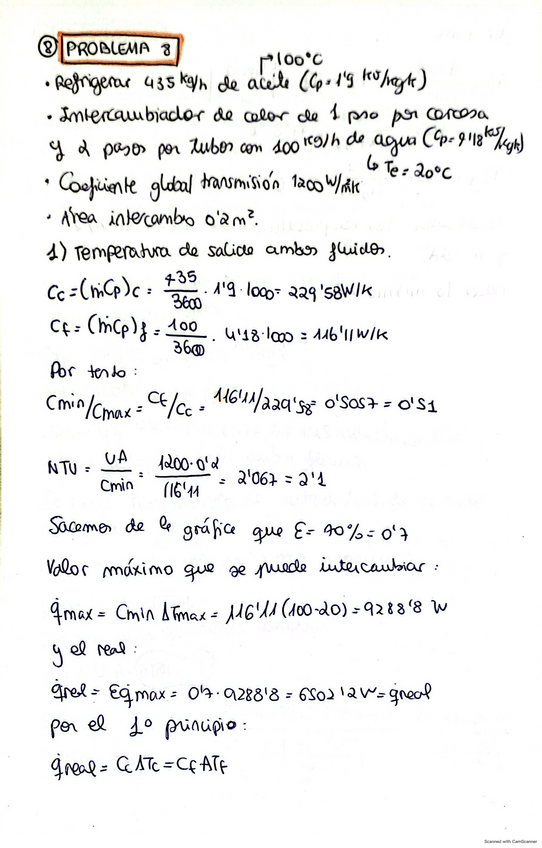 ⑧ PROBLEMA 8
→100°C
· Refrigerar 435 kg/h de aceite (Cp=1'9 kJ/kgK)
· Intercambiador de calor de 1 paso por carcasa
y 2 pasos por tubos con 100 kg/h de agua (Cp=4'18 kJ/kgK)
↳ Te=20°C
· Coeficiente global transmisión 1200 W/m²K
· Área intercambio 0'2m².
1) Temperatura de salida ambos fluidos.
Cc=(ṁCp)c = 435/3600 · 1'9 · 1000= 229'58W/K
Cf = (ṁCp)f = 100/3600 · 4'18·1000 = 116'11 W/K
Por tanto:
Cmin/Cmax = Cf/Cc = 116'11/229'58= 0'5057 = 0'51
NTU = UA/Cmin = 1200·0'2/116'11 = 2'067 = 2'1
Sacamos de la gráfica que E= 70%=0'7
Valor máximo que se puede intercambiar:
q̇max = Cmin ΔTmax = 116'11 (100-20)=9288'8 W
y el real:
q̇real= Eq̇max = 0'7·9288'8 = 6502'2W= q̇real
por el 1º principio:
q̇real = CcΔTc=CfΔTf
Scanned with CamScanner